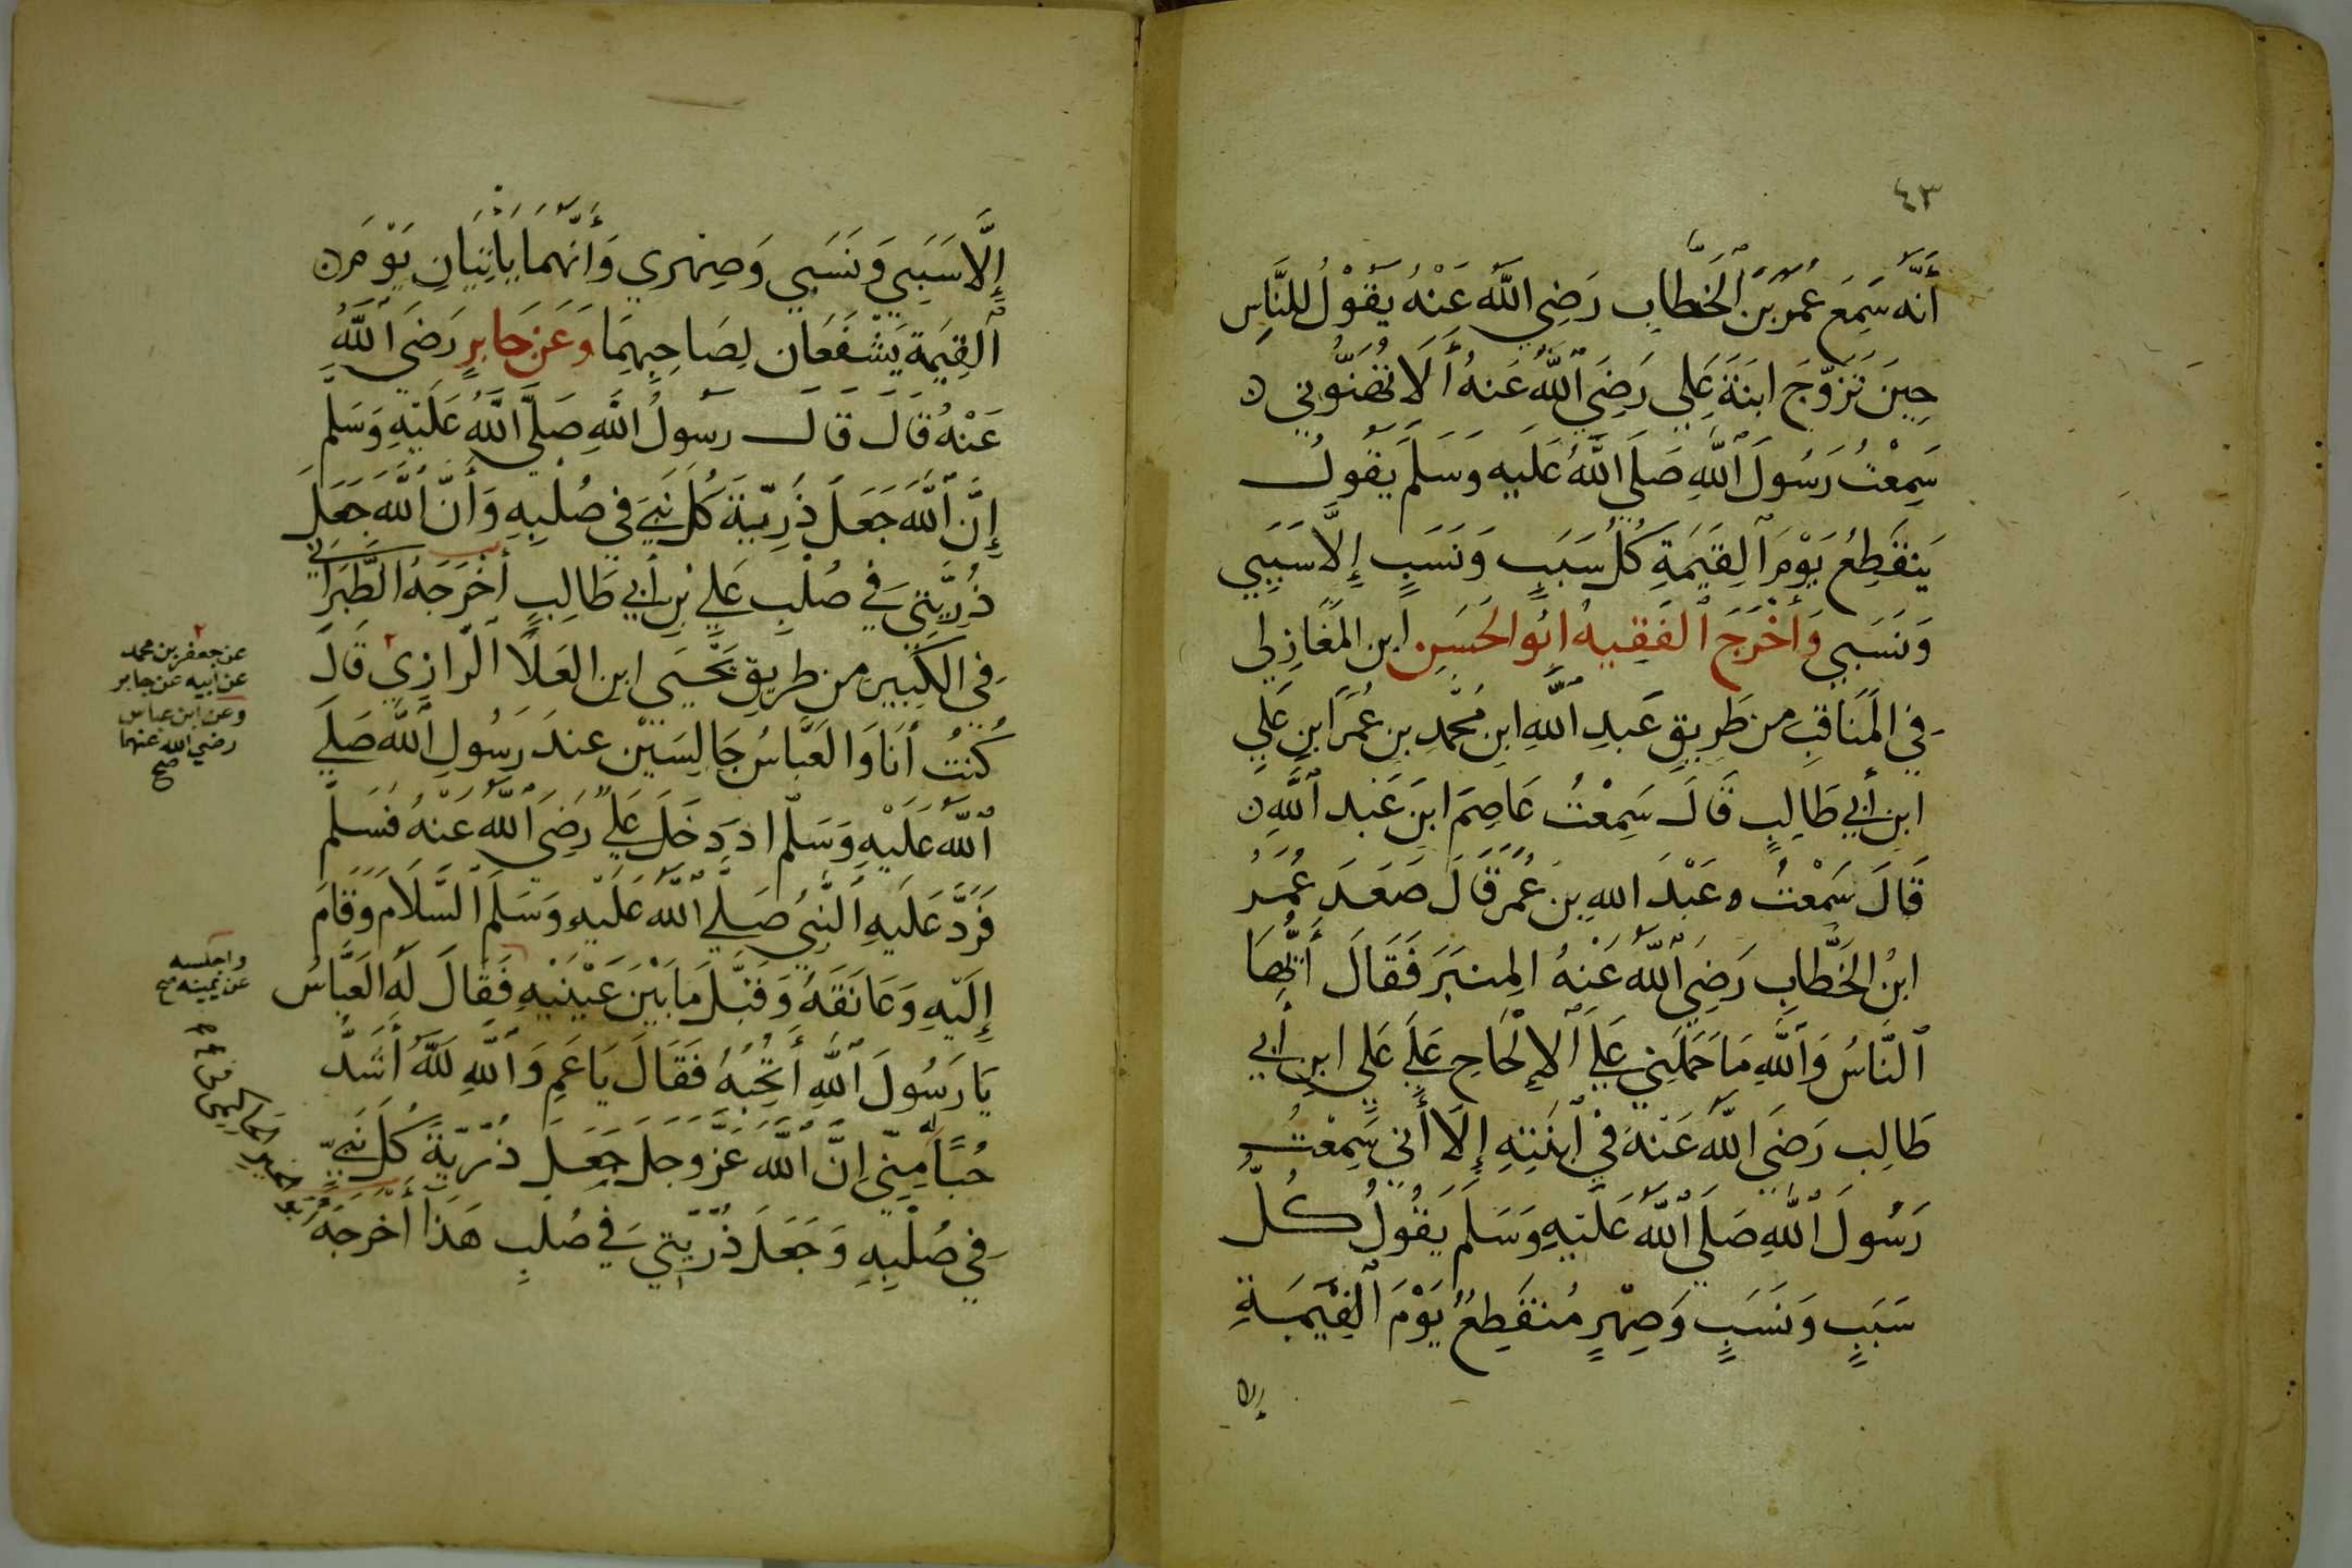 ٤٣
أَنَّه سَمِعَ عُمَرَ بْنَ الْخَطَّابِ رَضِيَ اللَّهُ عَنْهُ يَقُولُ للنَّاسِ
حِينَ تَزَوَّجَ ابنَةَ عَلِي رَضِيَ اللَّهُ عَنهُ أَلَا تُهَنُّونِي
سَمِعْتُ رَسُولَ اللَّهِ صَلَّى اللَّهُ عَلَيهِ وَسَلَّمَ يَقُولُ
يَنقَطِعُ يَوْمَ الْقِيَمَةِ كُلُّ سَبَبٍ وَنَسَبٍ إِلَّا سَبَبِي
وَنَسَبِي وَأَخْرَجَ الْفَقِيهُ أَبُو الْحَسَنِ ابن الْمَغَازِلِي
فِي الْمَنَاقِبِ مِن طَرِيقِ عَبدِ اللَّهِ ابنِ مُحَمَّدِ بنِ عُمَرَ ابنِ عَلِي
ابنِ أَبِي طَالِبٍ قَالَ سَمِعْتُ عَاصِمَ ابنَ عَبدِ اللَّهِ
قَالَ سَمِعْتُ عَبْدَ اللهِ بنَ عُمَرَ قَالَ صَعَدَ عُمَرُ
ابْنُ الْخَطَّابِ رَضِيَ اللَّهُ عَنْهُ الْمِنبَرَ فَقَالَ أَيُّهَا
النَّاسُ وَاللَّهِ مَا حَمَلَنِي عَلَى الْإِلْحَاحِ عَلَى عَلِي ابنِ أَبِي
طَالِبٍ رَضِيَ اللَّهُ عَنْهُ فِي ابْنَتِهِ إِلَّا أَنِّي سَمِعْتُ
رَسُولَ اللَّهِ صَلَّى اللَّهُ عَلَيْهِ وَسَلَّمَ يَقُولُ كُلُّ
سَبَبٍ وَنَسَبٍ وَصِهْرٍ مُنقَطِعٌ يَوْمَ الْقِيَمَةِ
إلا
إِلَّا سَبَبِي وَنَسَبِي وَصِهْرِي وَأَنَّهُمَا يَأْتِيَانِ يَوْمَ
الْقِيَمَةِ يَشْفَعَانِ لِصَاحِبِهِمَا وَعَن جَابِرٍ رَضِيَ اللَّهُ
عَنْهُ قَالَ قَالَ رَسُولُ اللَّهِ صَلَّى اللَّهُ عَلَيْهِ وَسَلَّمَ
إِنَّ اللَّهَ جَعَلَ ذُرِّيَّةَ كُلِّ نَبِيٍّ فِي صُلْبِهِ وَأَنَّ اللَّهَ جَعَلَ
ذُرِّيَّتِي فِي صُلْبِ عَلِي بْنِ أَبِي طَالِبٍ أَخْرَجَهُ الطَّبَرَانِي
فِي الْكَبِيرِ مِن طَرِيقِ يَحْيَى ابنِ الْعَلَا الرَّازِي قَالَ
عن جعفر بن محمد
عن أبيه عن جابر
وعن ابن عباس
رضي الله عنهما
صح
كُنْتُ أَنَا وَالْعَبَّاسُ جَالِسَيْنِ عِندَ رَسُولِ اللَّهِ صَلَّى
اللَّهُ عَلَيْهِ وَسَلَّمَ اد دَخَلَ عَلِيٌّ رَضِيَ اللَّهُ عَنْهُ فَسَلَّمَ
فَرَدَّ عَلَيهِ النَّبِيُّ صَلَّى اللَّهُ عَلَيْهِ وَسَلَّمَ السَّلَامَ وَقَامَ
إِلَيْهِ وَعَانَقَهُ وَقَبَّلَ مَا بَيْنَ عَيْنَيْهِ فَقَالَ لَهُ الْعَبَّاسُ
واجلسه
عن يمينه صح
يَا رَسُولَ اللَّهِ أَتُحِبُّهُ فَقَالَ يَا عَمِّ وَاللَّهِ لَلَّهُ أَشَدُّ
حُبًّا لَهُ مِنِّي إِنَّ اللَّهَ عَزَّ وَجَلَّ جَعَلَ ذُرِّيَّةَ كُلِّ نَبِيٍّ
فِي صُلْبِهِ وَجَعَلَ ذُرِّيَّتِي فِي صُلْبِ هَذَا أَخْرَجَهُ